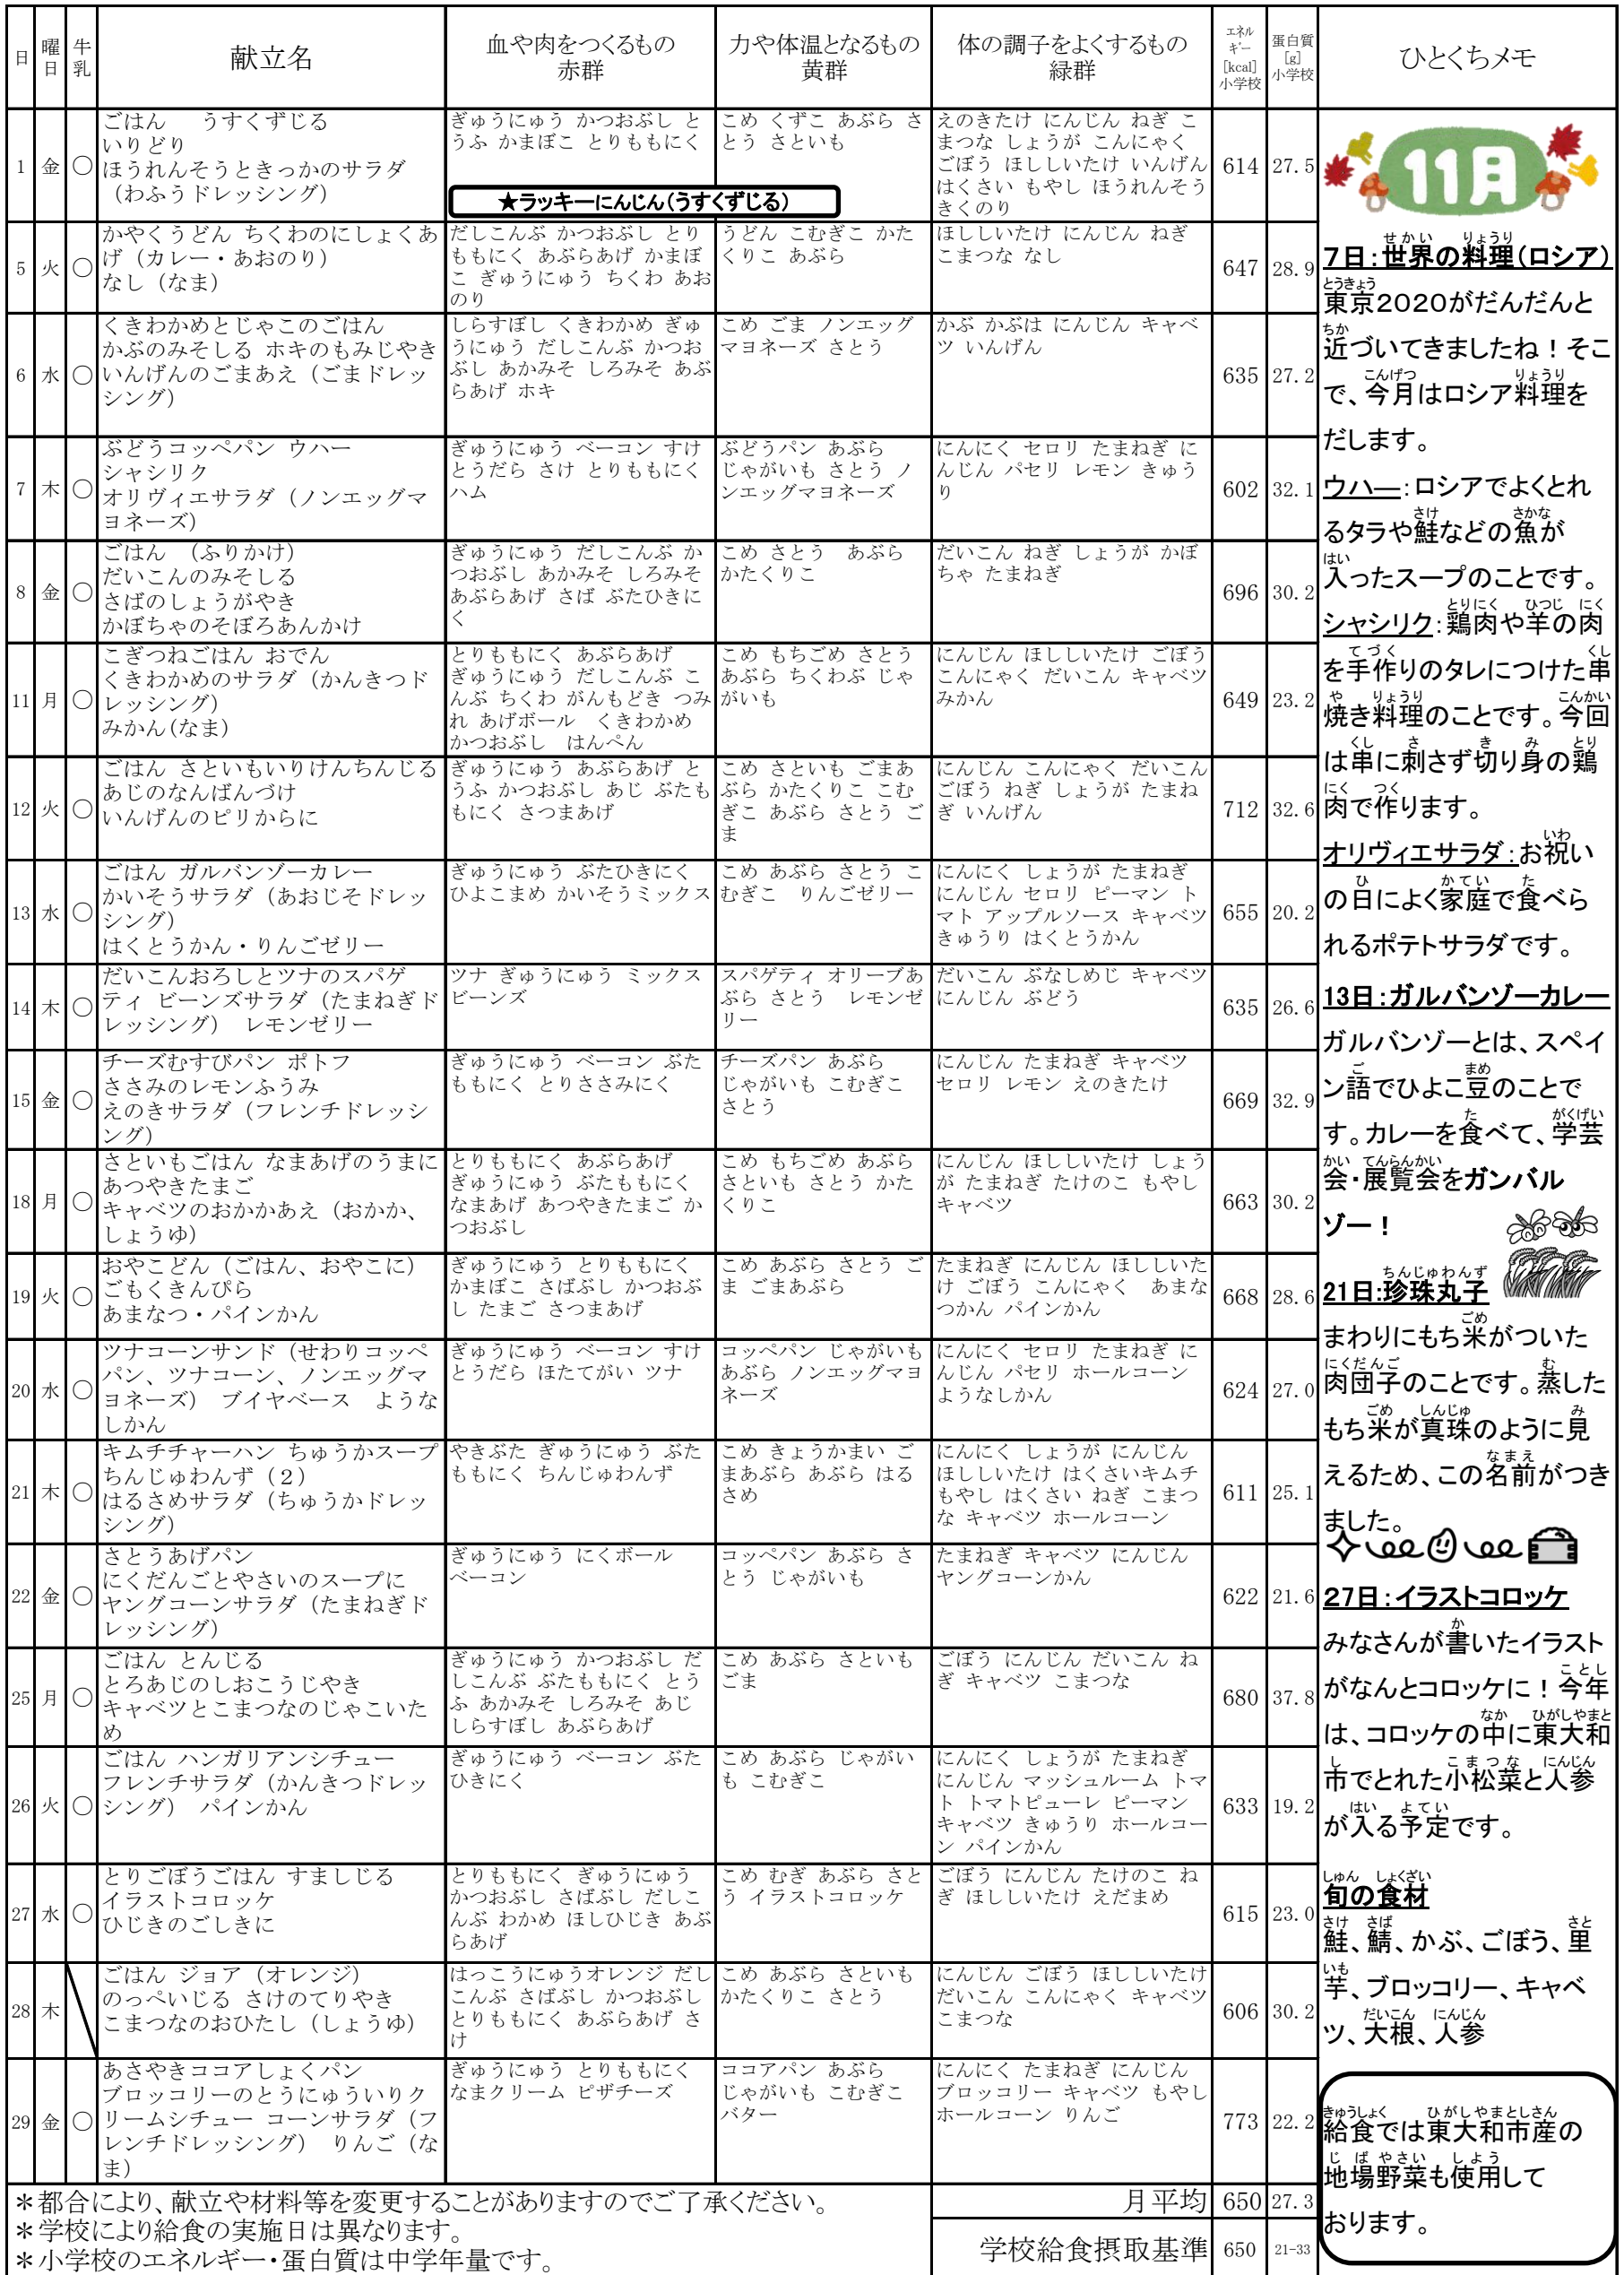 日 曜日 牛乳 献立名 血や肉をつくるもの 赤群 力や体温となるもの 黄群 体の調子をよくするもの 緑群 エネルギー[kcal]小学校 蛋白質[g]小学校 ひとくちメモ
1 金 ○
ごはん うすくずじる
いりどり
ほうれんそうときっかのサラダ
(わふうドレッシング)
ぎゅうにゅう かつおぶし と
うふ かまぼこ とりももにく
★ラッキーにんじん(うすくずじる)
こめ くずこ あぶら さ
とう さといも
えのきたけ にんじん ねぎ こ
まつな しょうが こんにゃく
ごぼう ほししいたけ いんげん
はくさい もやし ほうれんそう
きくのり
614 27.5
5 火 ○
かやくうどん ちくわのにしょくあ
げ(カレー・あおのり)
なし(なま)
だしこんぶ かつおぶし とり
ももにく あぶらあげ かまぼ
こ ぎゅうにゅう ちくわ あお
のり
うどん こむぎこ かた
くりこ あぶら
ほししいたけ にんじん ねぎ
こまつな なし
647 28.9
6 水 ○
くきわかめとじゃこのごはん
かぶのみそしる ホキのもみじやき
いんげんのごまあえ(ごまドレッ
シング)
しらすぼし くきわかめ ぎゅ
うにゅう だしこんぶ かつお
ぶし あかみそ しろみそ あぶ
らあげ ホキ
こめ ごま ノンエッグ
マヨネーズ さとう
かぶ かぶは にんじん キャベ
ツ いんげん
635 27.2
7 木 ○
ぶどうコッペパン ウハー
シャシリク
オリヴィエサラダ(ノンエッグマ
ヨネーズ)
ぎゅうにゅう ベーコン すけ
とうだら さけ とりももにく
ハム
ぶどうパン あぶら
じゃがいも さとう ノ
ンエッグマヨネーズ
にんにく セロリ たまねぎ に
んじん パセリ レモン きゅう
り
602 32.1
8 金 ○
ごはん (ふりかけ)
だいこんのみそしる
さばのしょうがやき
かぼちゃのそぼろあんかけ
ぎゅうにゅう だしこんぶ か
つおぶし あかみそ しろみそ
あぶらあげ さば ぶたひきに
く
こめ さとう あぶら
かたくりこ
だいこん ねぎ しょうが かぼ
ちゃ たまねぎ
696 30.2
11 月 ○
こぎつねごはん おでん
くきわかめのサラダ(かんきつド
レッシング)
みかん(なま)
とりももにく あぶらあげ
ぎゅうにゅう だしこんぶ こ
んぶ ちくわ がんもどき つみ
れ あげボール くきわかめ
かつおぶし はんぺん
こめ もちごめ さとう
あぶら ちくわぶ じゃ
がいも
にんじん ほししいたけ ごぼう
こんにゃく だいこん キャベツ
みかん
649 23.2
12 火 ○
ごはん さといもいりけんちんじる
あじのなんばんづけ
いんげんのピリからに
ぎゅうにゅう あぶらあげ と
うふ かつおぶし あじ ぶたも
もにく さつまあげ
こめ さといも ごまあ
ぶら かたくりこ こむ
ぎこ あぶら さとう ご
ま
にんじん こんにゃく だいこん
ごぼう ねぎ しょうが たまね
ぎ いんげん
712 32.6
13 水 ○
ごはん ガルバンゾーカレー
かいそうサラダ(あおじそドレッ
シング)
はくとうかん・りんごゼリー
ぎゅうにゅう ぶたひきにく
ひよこまめ かいそうミックス
こめ あぶら さとう こ
むぎこ りんごゼリー
にんにく しょうが たまねぎ
にんじん セロリ ピーマン ト
マト アップルソース キャベツ
きゅうり はくとうかん
655 20.2
14 木 ○
だいこんおろしとツナのスパゲ
ティ ビーンズサラダ(たまねぎド
レッシング) レモンゼリー
ツナ ぎゅうにゅう ミックス
ビーンズ
スパゲティ オリーブあ
ぶら さとう レモンゼ
リー
だいこん ぶなしめじ キャベツ
にんじん ぶどう
635 26.6
15 金 ○
チーズむすびパン ポトフ
ささみのレモンふうみ
えのきサラダ(フレンチドレッシ
ング)
ぎゅうにゅう ベーコン ぶた
ももにく とりささみにく
チーズパン あぶら
じゃがいも こむぎこ
さとう
にんじん たまねぎ キャベツ
セロリ レモン えのきたけ
669 32.9
18 月 ○
さといもごはん なまあげのうまに
あつやきたまご
キャベツのおかかあえ(おかか、
しょうゆ)
とりももにく あぶらあげ
ぎゅうにゅう ぶたももにく
なまあげ あつやきたまご か
つおぶし
こめ もちごめ あぶら
さといも さとう かた
くりこ
にんじん ほししいたけ しょう
が たまねぎ たけのこ もやし
キャベツ
663 30.2
19 火 ○
おやこどん(ごはん、おやこに)
ごもくきんぴら
あまなつ・パインかん
ぎゅうにゅう とりももにく
かまぼこ さばぶし かつおぶ
し たまご さつまあげ
こめ あぶら さとう ご
ま ごまあぶら
たまねぎ にんじん ほししいた
け ごぼう こんにゃく あまな
つかん パインかん
668 28.6
20 水 ○
ツナコーンサンド(せわりコッペ
パン、ツナコーン、ノンエッグマ
ヨネーズ) ブイヤベース ような
しかん
ぎゅうにゅう ベーコン すけ
とうだら ほたてがい ツナ
コッペパン じゃがいも
あぶら ノンエッグマヨ
ネーズ
にんにく セロリ たまねぎ に
んじん パセリ ホールコーン
ようなしかん
624 27.0
21 木 ○
キムチチャーハン ちゅうかスープ
ちんじゅわんず(2)
はるさめサラダ(ちゅうかドレッ
シング)
やきぶた ぎゅうにゅう ぶた
ももにく ちんじゅわんず
こめ きょうかまい ご
まあぶら あぶら はる
さめ
にんにく しょうが にんじん
ほししいたけ はくさいキムチ
もやし はくさい ねぎ こまつ
な キャベツ ホールコーン
611 25.1
22 金 ○
さとうあげパン
にくだんごとやさいのスープに
ヤングコーンサラダ(たまねぎド
レッシング)
ぎゅうにゅう にくボール
ベーコン
コッペパン あぶら さ
とう じゃがいも
たまねぎ キャベツ にんじん
ヤングコーンかん
622 21.6
25 月 ○
ごはん とんじる
とろあじのしおこうじやき
キャベツとこまつなのじゃこいた
め
ぎゅうにゅう かつおぶし だ
しこんぶ ぶたももにく とう
ふ あかみそ しろみそ あじ
しらすぼし あぶらあげ
こめ あぶら さといも
ごま
ごぼう にんじん だいこん ね
ぎ キャベツ こまつな
680 37.8
26 火 ○
ごはん ハンガリアンシチュー
フレンチサラダ(かんきつドレッ
シング) パインかん
ぎゅうにゅう ベーコン ぶた
ひきにく
こめ あぶら じゃがい
も こむぎこ
にんにく しょうが たまねぎ
にんじん マッシュルーム トマ
ト トマトピューレ ピーマン
キャベツ きゅうり ホールコー
ン パインかん
633 19.2
27 水 ○
とりごぼうごはん すましじる
イラストコロッケ
ひじきのごしきに
とりももにく ぎゅうにゅう
かつおぶし さばぶし だしこ
んぶ わかめ ほしひじき あぶ
らあげ
こめ むぎ あぶら さと
う イラストコロッケ
ごぼう にんじん たけのこ ね
ぎ ほししいたけ えだまめ
615 23.0
28 木
ごはん ジョア(オレンジ)
のっぺいじる さけのてりやき
こまつなのおひたし(しょうゆ)
はっこうにゅうオレンジ だし
こんぶ さばぶし かつおぶし
とりももにく あぶらあげ さ
け
こめ あぶら さといも
かたくりこ さとう
にんじん ごぼう ほししいたけ
だいこん こんにゃく キャベツ
こまつな
606 30.2
29 金 ○
あさやきココアしょくパン
ブロッコリーのとうにゅういりク
リームシチュー コーンサラダ(フ
レンチドレッシング) りんご(な
ま)
ぎゅうにゅう とりももにく
なまクリーム ピザチーズ
ココアパン あぶら
じゃがいも こむぎこ
バター
にんにく たまねぎ にんじん
ブロッコリー キャベツ もやし
ホールコーン りんご
773 22.2
*都合により、献立や材料等を変更することがありますのでご了承ください。
*学校により給食の実施日は異なります。
*小学校のエネルギー・蛋白質は中学年量です。
月平均 650 27.3
学校給食摂取基準 650 21-33
11月
せかい りょうり
7日:世界の料理(ロシア)
とうきょう
東京2020がだんだんと
ちか
近づいてきましたね!そこ
こんげつ りょうり
で、今月はロシア料理を
だします。
ウハ―:ロシアでよくとれ
さけ さかな
るタラや鮭などの魚が
はい
入ったスープのことです。
とりにく ひつじ にく
シャシリク:鶏肉や羊の肉
てづく くし
を手作りのタレにつけた串
や りょうり こんかい
焼き料理のことです。今回
くし さ き み とり
は串に刺さず切り身の鶏
にく つく
肉で作ります。
いわ
オリヴィエサラダ:お祝い
ひ かてい た
の日によく家庭で食べら
れるポテトサラダです。
13日:ガルバンゾーカレー
ガルバンゾーとは、スペイ
ご まめ
ン語でひよこ豆のことで
た がくげい
す。カレーを食べて、学芸
かい てんらんかい
会・展覧会をガンバル
ゾー!
ちんじゅわんず
21日:珍珠丸子
ごめ
まわりにもち米がついた
にくだんご む
肉団子のことです。蒸した
ごめ しんじゅ み
もち米が真珠のように見
なまえ
えるため、この名前がつき
ました。
27日:イラストコロッケ
か
みなさんが書いたイラスト
ことし
がなんとコロッケに!今年
なか ひがしやまと
は、コロッケの中に東大和
し こまつな にんじん
市でとれた小松菜と人参
はい よてい
が入る予定です。
しゅん しょくざい
旬の食材
さけ さば さと
鮭、鯖、かぶ、ごぼう、里
いも
芋、ブロッコリー、キャベ
だいこん にんじん
ツ、大根、人参
きゅうしょく ひがしやまとしさん
給食では東大和市産の
じばやさい しよう
地場野菜も使用して
おります。